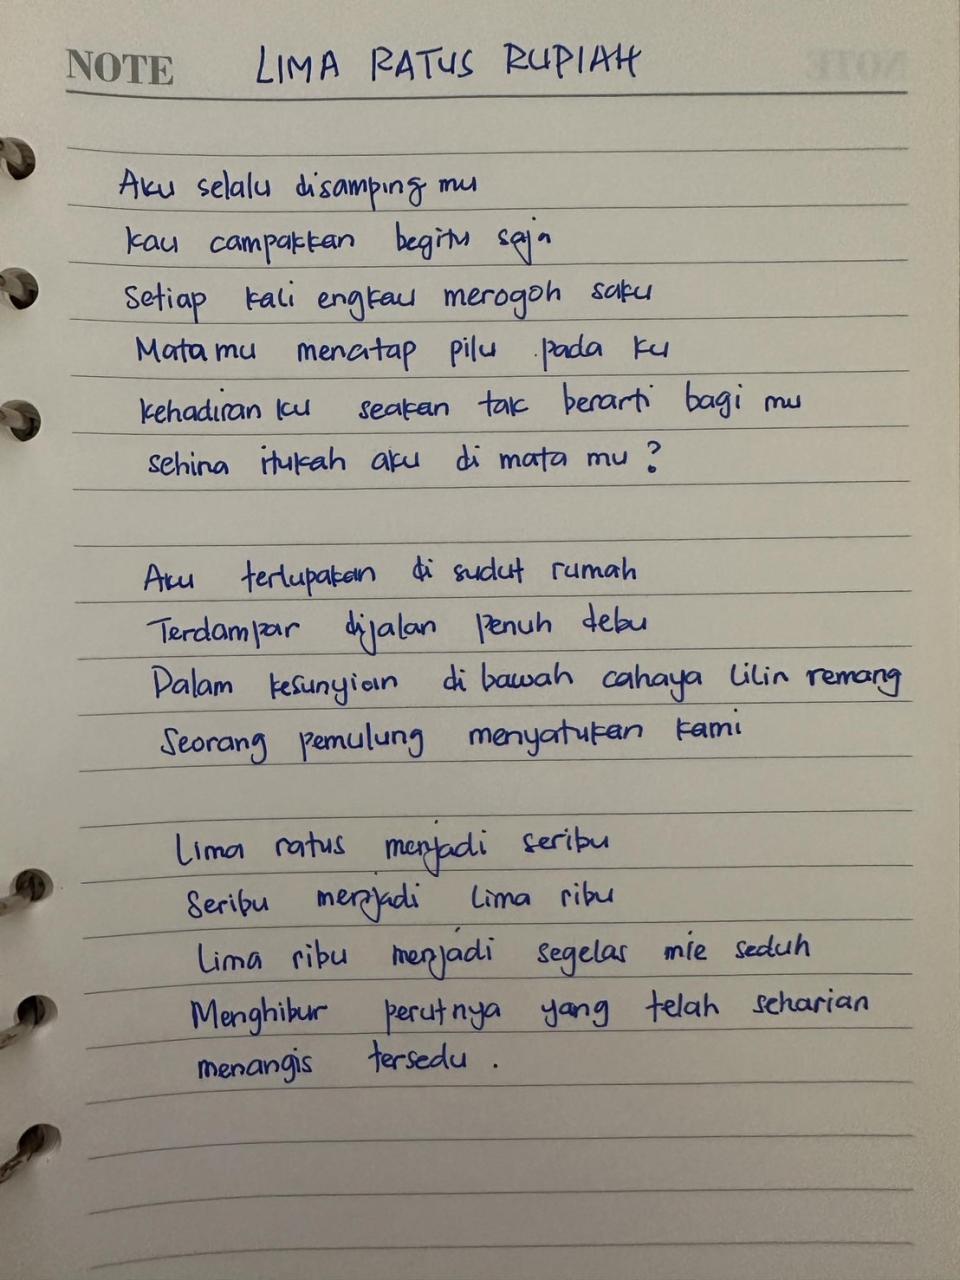 NOTE LIMA RATUS RUPIAH
Aku selalu disamping mu
Kau campakkan begitu saja
Setiap kali engkau merogoh saku
Mata mu menatap pilu pada ku
Kehadiran ku seakan tak berarti bagi mu
Sehina itukah aku di mata mu ?
Aku terlupakan di sudut rumah
Terdampar dijalan penuh debu
Dalam kesunyian di bawah cahaya lilin remang
Seorang pemulung menyatukan kami
Lima ratus menjadi seribu
Seribu menjadi lima ribu
Lima ribu menjadi segelas mie seduh
Menghibur perutnya yang telah seharian
menangis tersedu .